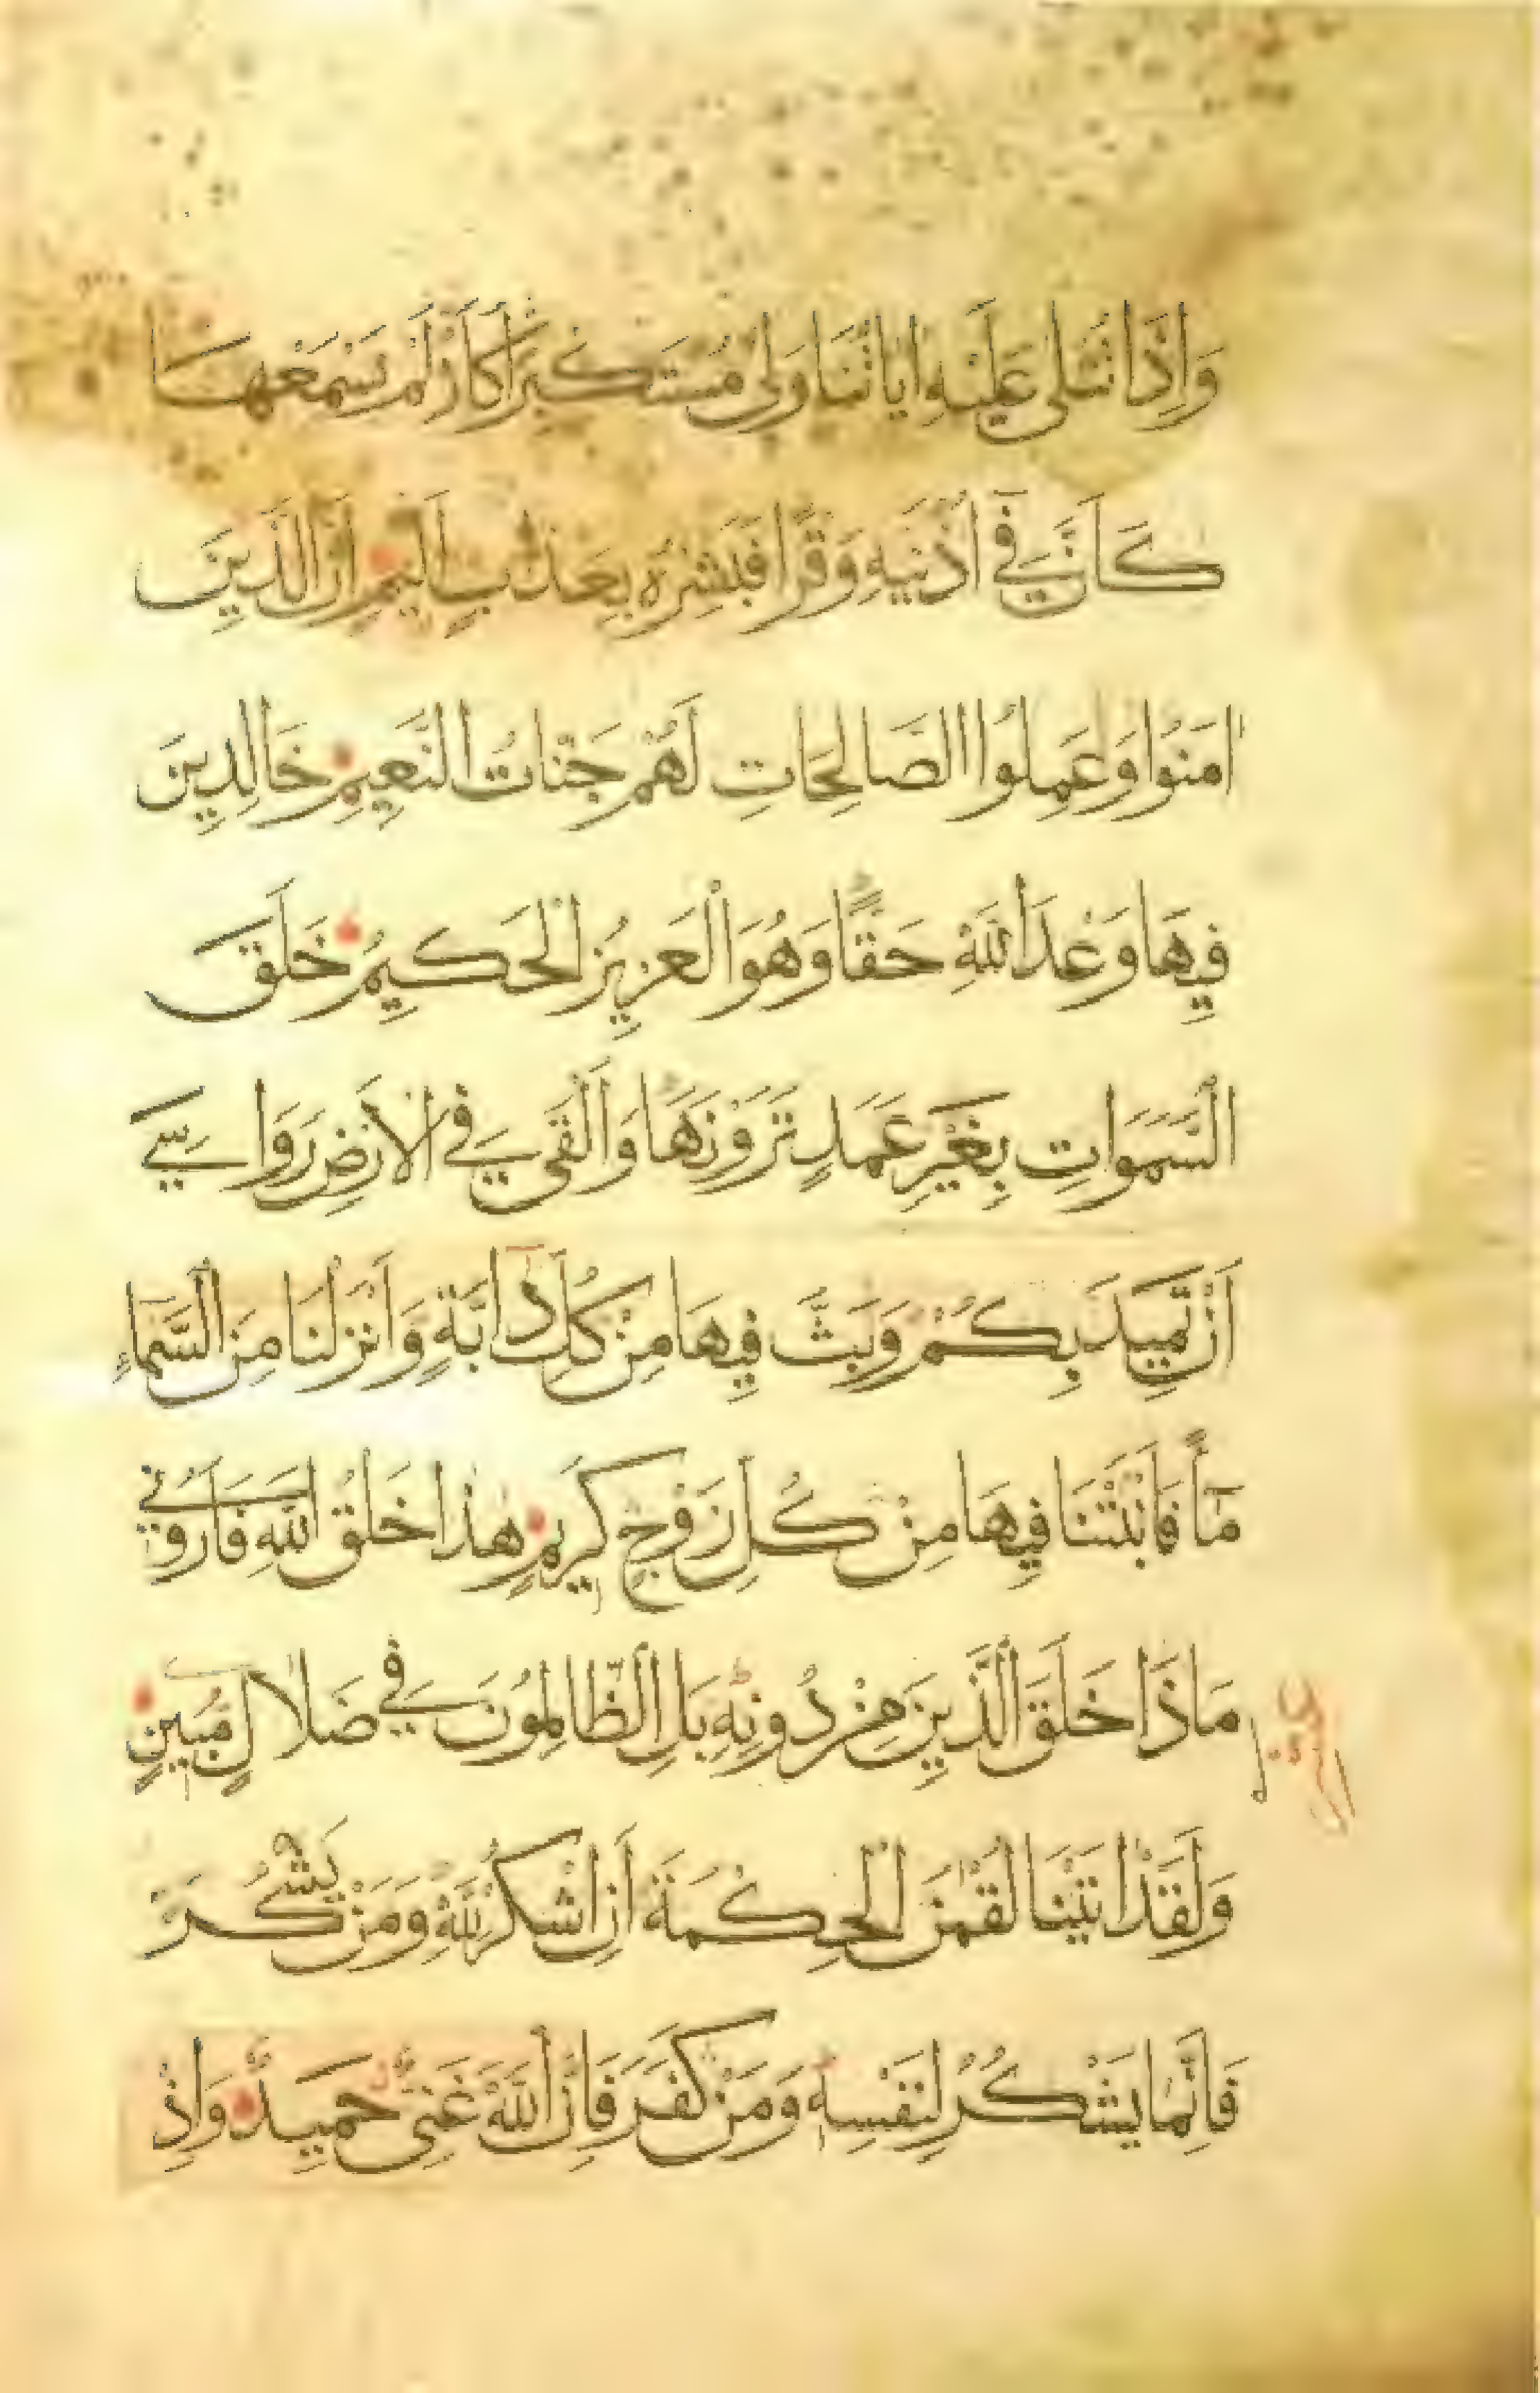 وَاِذَا تُتْلٰى عَلَيْهِ اٰيَاتُنَا وَلّٰى مُسْتَكْبِرًا كَاَنْ لَمْ يَسْمَعْهَا
كَاَنَّ فِي اُذْنَيْهِ وَقْرًا فَبَشِّرْهُ بِعَذَابٍ اَلِيمٍ اِنَّ الَّذِينَ
اٰمَنُوا وَعَمِلُوا الصَّالِحَاتِ لَهُمْ جَنَّاتُ النَّعِيمِ خَالِدِينَ
فِيهَا وَعْدَ اللّٰهِ حَقًّا وَهُوَ الْعَزِيزُ الْحَكِيمُ خَلَقَ
السَّمٰوَاتِ بِغَيْرِ عَمَدٍ تَرَوْنَهَا وَاَلْقٰى فِي الْاَرْضِ رَوَاسِيَ
اَنْ تَمِيدَ بِكُمْ وَبَثَّ فِيهَا مِنْ كُلِّ دَابَّةٍ وَاَنْزَلْنَا مِنَ السَّمَاءِ
مَاءً فَاَنْبَتْنَا فِيهَا مِنْ كُلِّ زَوْجٍ كَرِيمٍ هٰذَا خَلْقُ اللّٰهِ فَاَرُونِي
مَاذَا خَلَقَ الَّذِينَ مِنْ دُونِهِ بَلِ الظَّالِمُونَ فِي ضَلَالٍ مُبِينٍ
وَلَقَدْ اٰتَيْنَا لُقْمٰنَ الْحِكْمَةَ اَنِ اشْكُرْ لِلّٰهِ وَمَنْ يَشْكُرْ
فَاِنَّمَا يَشْكُرُ لِنَفْسِهِ وَمَنْ كَفَرَ فَاِنَّ اللّٰهَ غَنِيٌّ حَمِيدٌ وَاِذْ